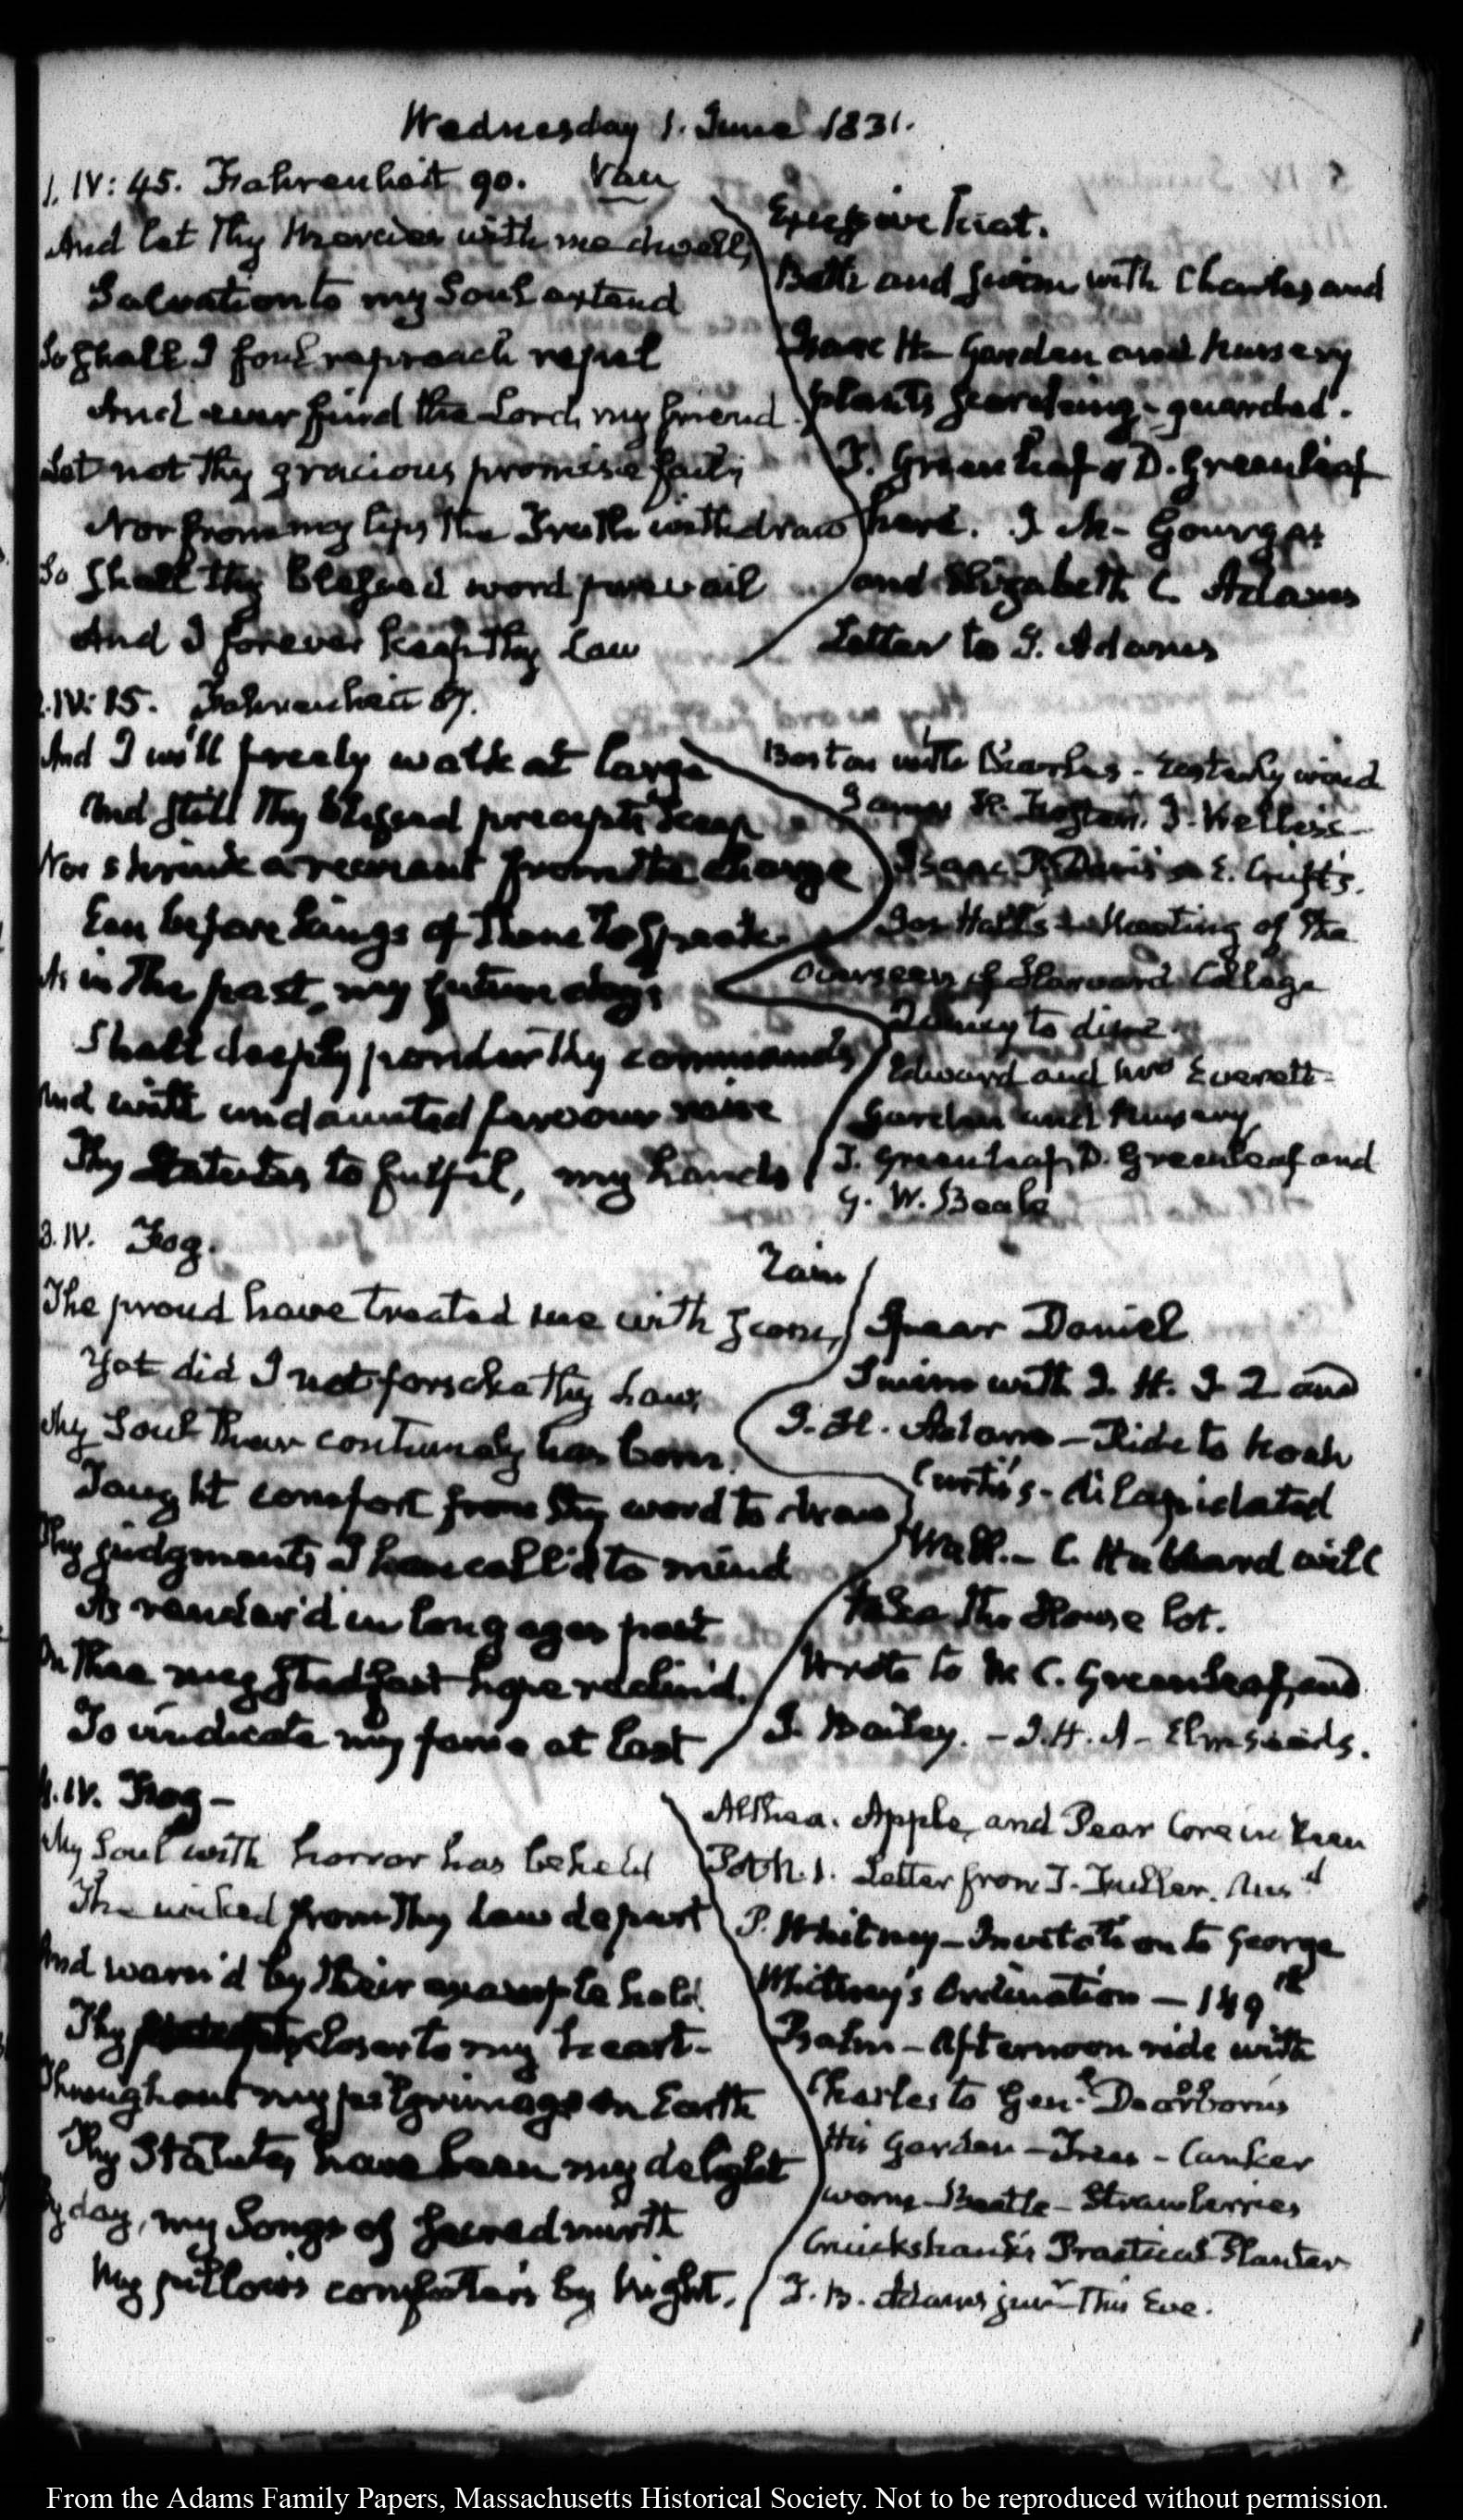 Wednesday 1. June 1831.
1. IV: 45. Fahrenheit 90. Vau
And let Thy Mercies with me dwell,
Salvation to my Soul extend
So shall I foul reproach repel
And ever find the Lord, my friend.
Let not thy gracious promise fail;
Nor from my lips the Truth withdraw
So shall thy blessed word prevail
And I forever keep thy Law
Excessive heat.
Bath and swim with Charles and
Isaac H— Garden and Nursery
plants scorching - guarded.
T. Greenleaf & D. Greenleaf
here. J M- Gourgas
and Elizabeth C. Adams
Letter to J. Adams
2. IV: 15. Fahrenheit 87.
And I will freely walk at large
And still Thy blessed precepts keep
Nor shrink a recreant from the charge
Een before kings of Thine to speak.
As in the past, my future days
Shall deeply ponder thy commands,
And with undaunted fervour raise
Thy Statutes to fulfil, my hands
Boston with Charles - Easterly wind
James H. Foster. J.
Isaac P. Davis E. Cruft's.
Jos Hall's - Meeting of the
Overseers of Harvard College
Quincy to dine.
Edward and Mrs Everett-
Garden and Nursery
T. Greenleaf, D. Greenleaf and
G. W. Beale
3. IV. Fog.
Zain
The proud have treated me with scorn,
Yet did I not forsake thy Law,
My Soul their contumely has borne.
Taught comfort from thy word to draw
Thy judgments I have call'd to mind
As render'd in long ages past
On Thee my stedfast hope reclin'd.
To vindicate my fame at last
Spear Daniel
Swim with I. H. J Q and
J. H. Adams - Ride to Noah
Curtis's - dilapidated
Wall. - C. Hubbard will
take the House lot.
Wrote to M C. Greenleaf, and
J. Bailey. - I. H. A - Elm seeds.
4. IV. Fog -
My Soul with horror has beheld
The wicked from Thy Law depart
And warn'd by their example held
Thy closer to my heart.
Throughout my pilgrimage on Earth
Thy Statutes have been my delight
By day, my Songs of sacred mirth
My pillow's comforters by Night.
Althea. Apple, and Pear Core in
Pot N. 1. Letter from T. Fuller. Mrs
P. Whitney - Invitation to George
Whitney's Ordination - 149th
Psalm - Afternoon ride with
Charles to Genl. Dearborn's
His Garden - Trees - Canker
worm - Beetle - Strawberries
Cruickshank's Practical Planter
T. B. Adams junr This Eve.
From the Adams Family Papers, Massachusetts Historical Society. Not to be reproduced without permission.